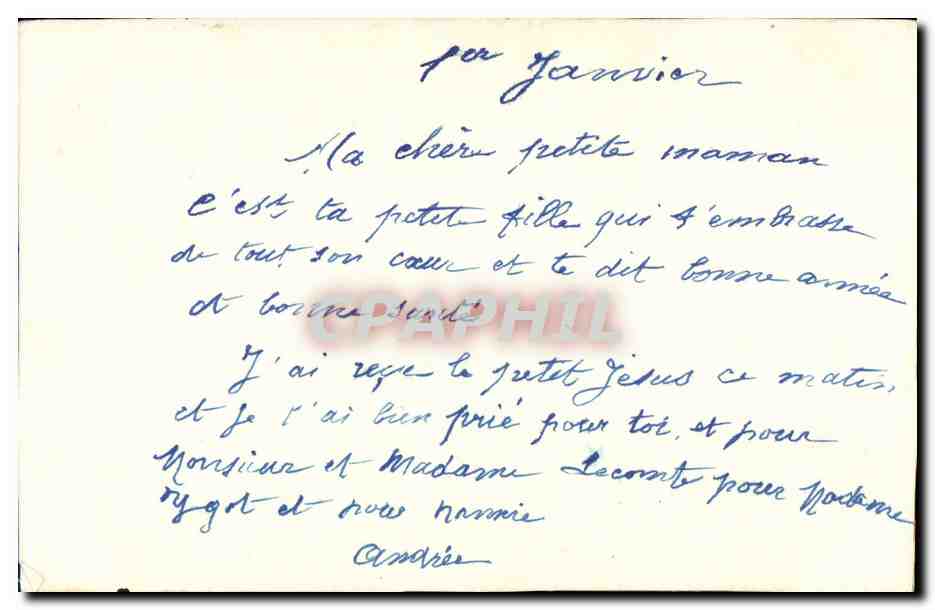 1er Janvier
Ma chère petite maman
c'est ta petite fille qui t'embrasse
de tout son cœur et te dit bonne année
et bonne santé
CPAPHIL
J'ai reçu le petit Jésus ce matin,
et je l'ai bien prié pour toi, et pour
Monsieur et Madame Lecomte pour Madame
Ygot et pour nannie
Andrée